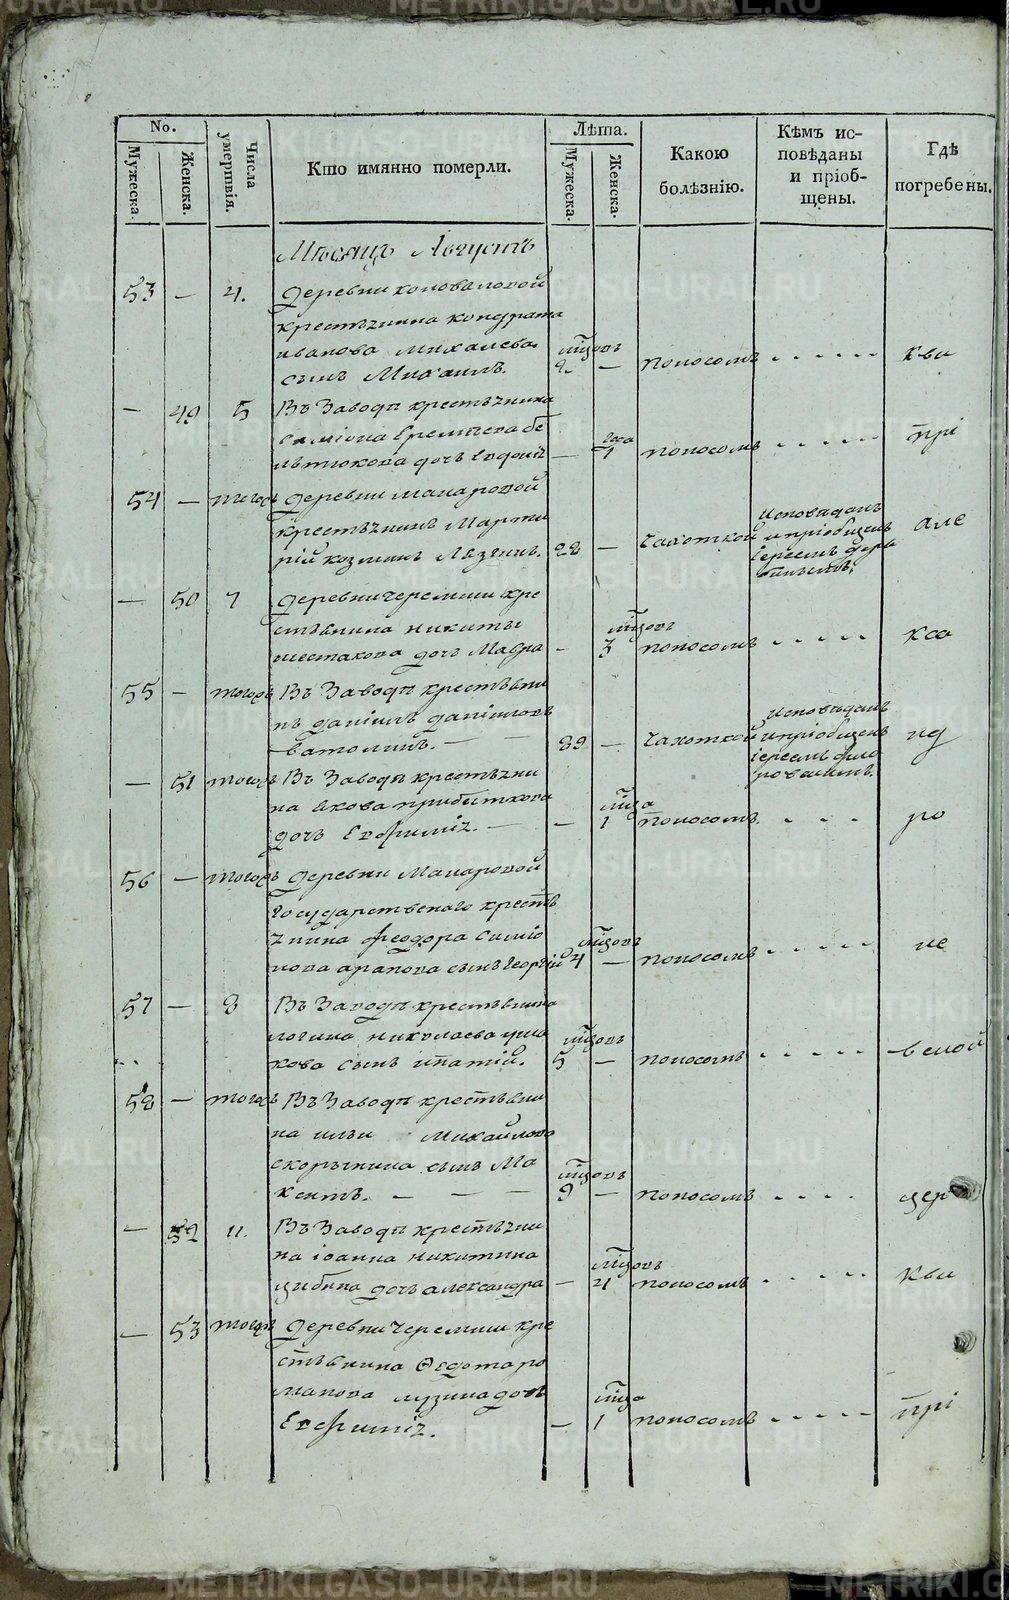 No.
Мужеска.
Женска.
Числа умертвія.
Кто имянно померли.
Лѣта.
Мужеска.
Женска.
Какою болѣзнію.
Кѣмъ исповѣданы и пріобщены.
Гдѣ погребены.
Мѣсяцъ Августъ
53 — 4. деревни коноваловой
крестьянина кондрата
иванова михалева
сынъ Михаилъ. 2. — поносомъ кви
— 49 5 Въ Заводѣ крестьянина
Симіона Еремѣева бе
льтюкова дочь Евдокія — года 1 поносомъ прі
54 — тогожъ деревни макаровой
крестьянинъ Марти
рій козминъ 22 — Чахоткой исповѣданъ
и пріобщенъ
іереемъ але
— 50 7 деревни черемши кре
стьянина никиты
шестакова дочь Мавра — 3 поносомъ ксо
55 — тогожъ Въ Заводѣ крестьяни
нъ даніилъ даніиловъ
ватолинъ. — — 39 — Чахоткой исповѣданъ
и пріобщенъ
іереемъ нд
— 51 тогожъ Въ Заводѣ крестьяни
на Якова прибыткова
дочь Евфимія. — — 1 поносомъ ро
56 — тогожъ деревни Макаровой
государственаго кресть
янина феодора Симіо
нова арапова сынъ Георгій 4 — поносомъ не
57 — 8 Въ Заводѣ крестьянина
логина николаева уша
кова сынъ ипатій. 5 — поносомъ вской
58 — тогожъ Въ Заводѣ крестьяни
на ильи Михайлова
скорынина сынъ Ма
ксимъ. — — — 9 — поносомъ цер
— 52 11. Въ Заводѣ крестьяни
на іоанна никитина
цыбина дочь александра — 4 поносомъ кви
— 53 тогожъ деревни Черемши кре
стьянина Ѳедота ро
манова лузина дочь
Евфимія. — 1 поносомъ прі
METRIKI.GASO-URAL.RU